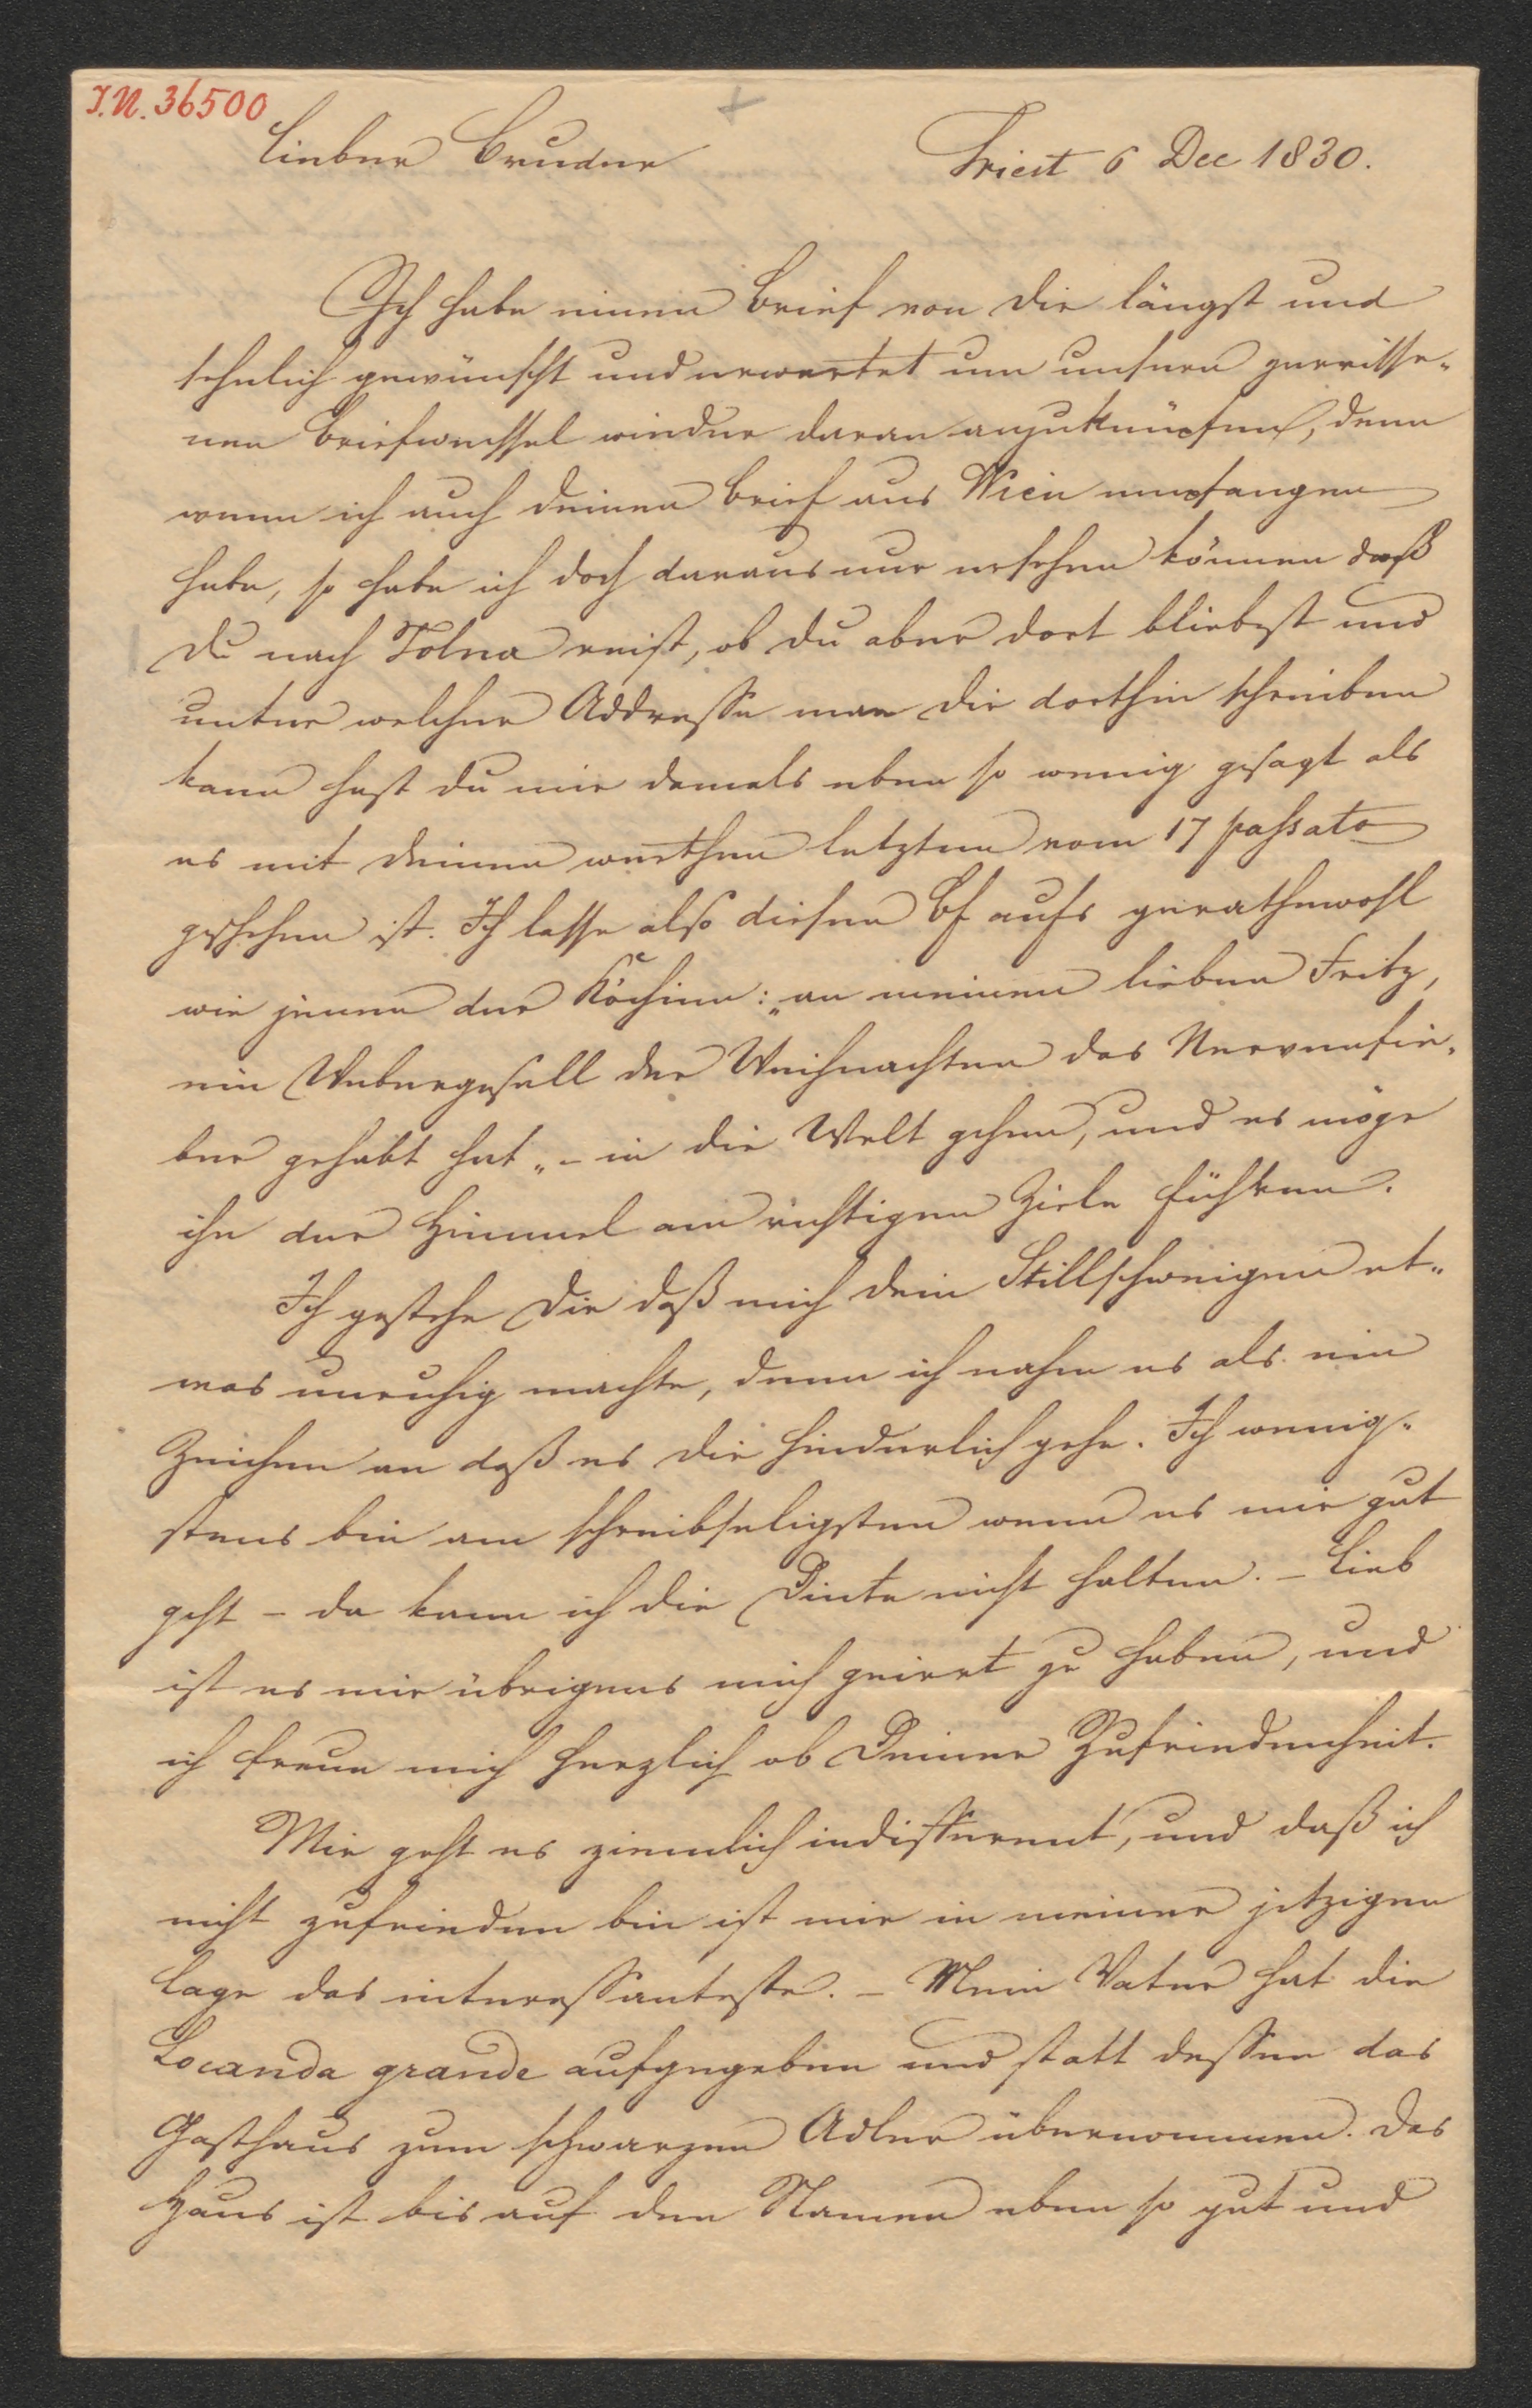 I.N. 36500
Lieber Bruder
Triest 6 Dec 1830.
Ich habe einen Brief von Dir längst und
sehnlich gewünscht und erwartet um unsern zerrisse-
nen Briefwechsel wieder daran anzuknüpfen, denn
wenn ich auch deinen Brief aus Wien empfangen
habe, so habe ich doch daraus nur ersehen können daß
Du nach Tolna reist, ob du aber dort bliebest und
unter welcher Addresse man Dir dorthin schreiben
kann hast du mir damals eben so wenig gesagt als
es mit deinem werthen letzten vom 17 passato
geschehen ist. Ich lasse also diesen Bf aufs gerathewohl
wie jenen der Köchinn: „an meinen lieben Fritz,
ein Webergesell der Weihnachten das Nervenfie-
ber gehabt hat„ - in die Welt gehen, und es möge
ihn der Himmel am richtigen Ziele führen.
Ich gestehe Dir daß mich dein Stillschweigen et-
was unruhig machte, denn ich nahm es als ein
Zeichen an daß es Dir hinderlich gehe. Ich wenig-
stens bin am schreibseligsten wenn es mir gut
geht - da kann ich die Dinte nicht halten. - Lieb
ist es mir übrigens mich geirrt zu haben, und
ich freue mich herzlich ob Deiner Zufriedenheit.
Mir geht es ziemlich indifferent, und daß ich
nicht zufrieden bin ist mir in meiner jetzigen
Lage das interessanteste. - Mein Vater hat die
Locanda grande aufgegeben und statt dessen das
Gasthaus zum schwarzen Adler übernommen. Das
Haus ist bis auf den Namen eben so gut und